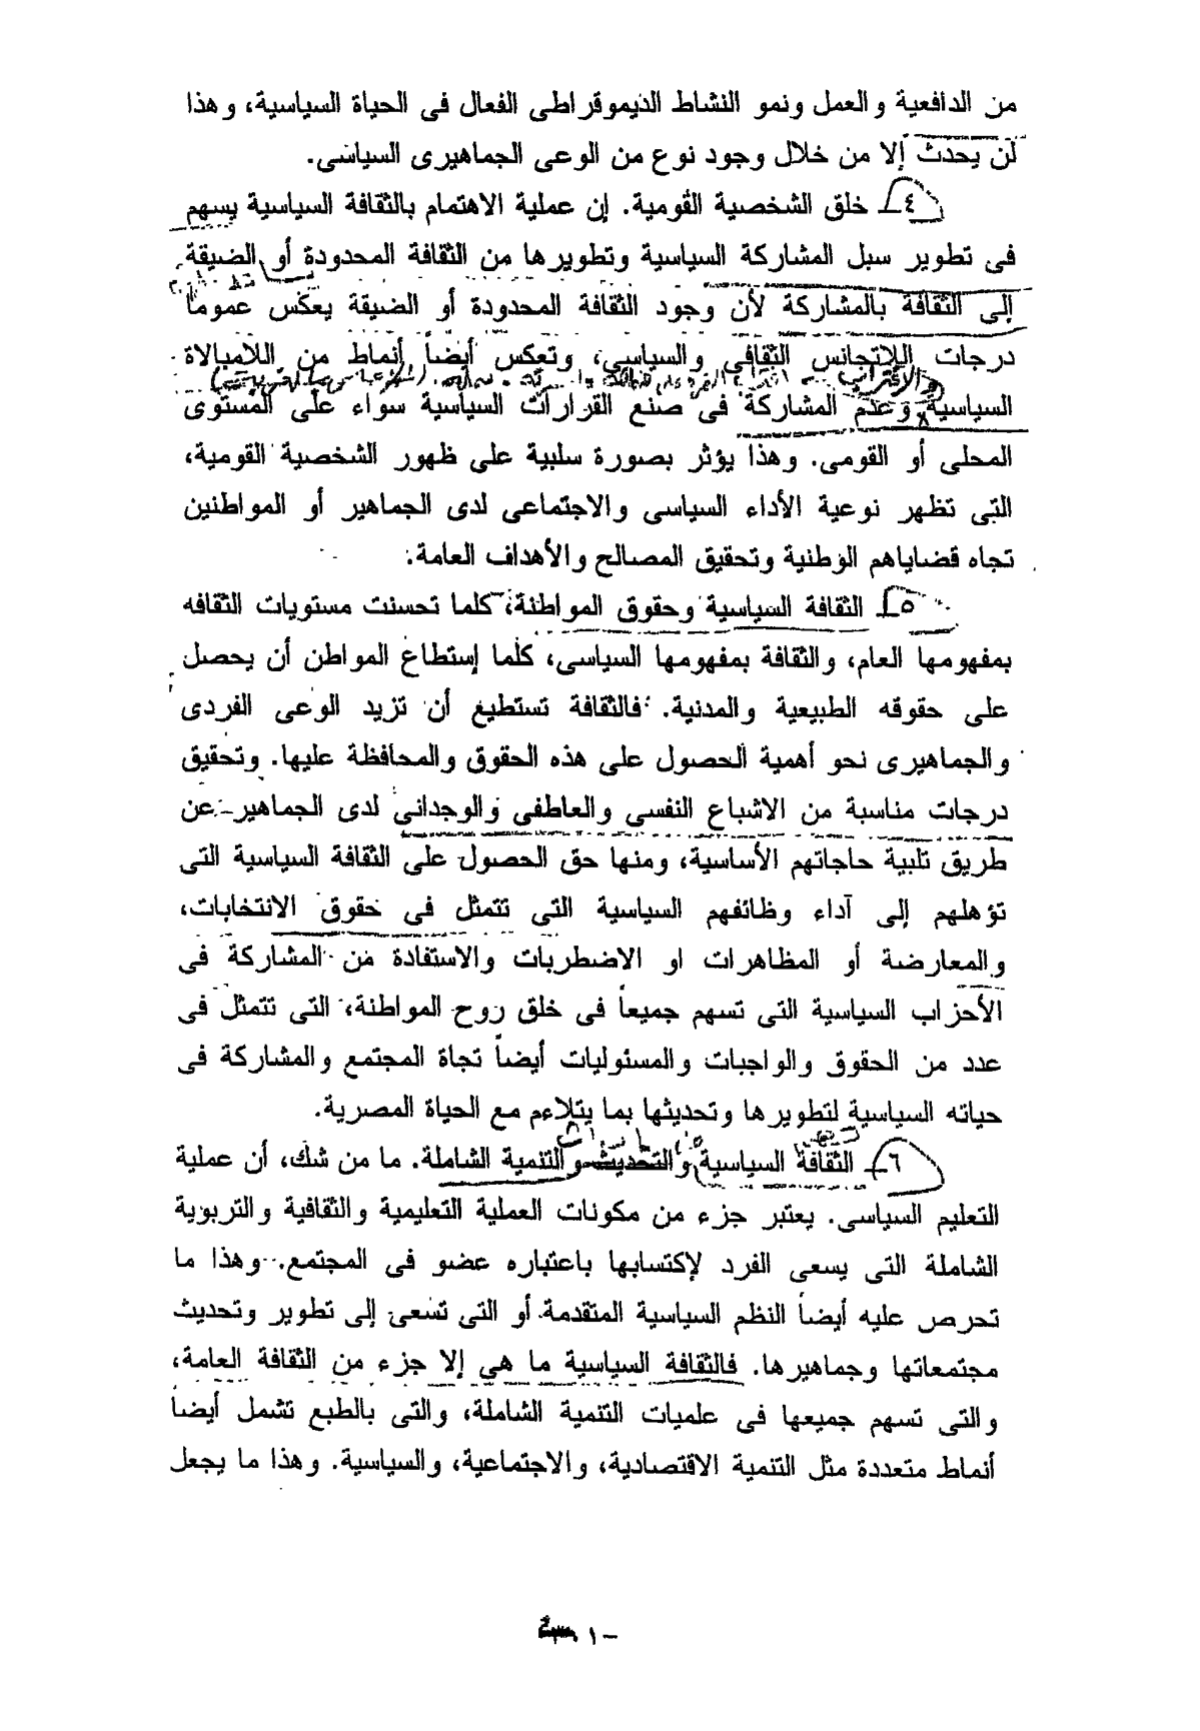 من الدافعية والعمل ونمو النشاط الديموقراطى الفعال فى الحياة السياسية، وهذا
لن يحدث إلا من خلال وجود نوع من الوعى الجماهيرى السياسى.
٤ـ خلق الشخصية القومية. إن عملية الاهتمام بالثقافة السياسية يسهم
فى تطوير سبل المشاركة السياسية وتطويرها من الثقافة المحدودة أو الضيقة
إلى الثقافة بالمشاركة لأن وجود الثقافة المحدودة أو الضيقة يعكس عموماً
درجات اللاتجانس الثقافي والسياسي، وتعكس أيضاً أنماط من اللامبالاة
والاغتراب
السياسية وعدم المشاركة فى صنع القرارات السياسية سواء على المستوى
المحلى أو القومى. وهذا يؤثر بصورة سلبية على ظهور الشخصية القومية،
التى تظهر نوعية الأداء السياسى والاجتماعى لدى الجماهير أو المواطنين
تجاه قضاياهم الوطنية وتحقيق المصالح والأهداف العامة.
٥ـ الثقافة السياسية وحقوق المواطنة، كلما تحسنت مستويات الثقافه
بمفهومها العام، والثقافة بمفهومها السياسى، كلما إستطاع المواطن أن يحصل
على حقوقه الطبيعية والمدنية. فالثقافة تستطيع أن تزيد الوعى الفردى
والجماهيرى نحو أهمية الحصول على هذه الحقوق والمحافظة عليها. وتحقيق
درجات مناسبة من الاشباع النفسى والعاطفى والوجدانى لدى الجماهير عن
طريق تلبية حاجاتهم الأساسية، ومنها حق الحصول على الثقافة السياسية التى
تؤهلهم إلى آداء وظائفهم السياسية التى تتمثل فى حقوق الانتخابات،
والمعارضة أو المظاهرات او الاضطربات والاستفادة من المشاركة فى
الأحزاب السياسية التى تسهم جميعاً فى خلق روح المواطنة، التى تتمثل فى
عدد من الحقوق والواجبات والمسئوليات أيضاً تجاة المجتمع والمشاركة فى
حياته السياسية لتطويرها وتحديثها بما يتلاءم مع الحياة المصرية.
٦ـ الثقافة السياسية والتحديث والتنمية الشاملة. ما من شك، أن عملية
التعليم السياسى. يعتبر جزء من مكونات العملية التعليمية والثقافية والتربوية
الشاملة التى يسعى الفرد لإكتسابها باعتباره عضو فى المجتمع. وهذا ما
تحرص عليه أيضاً النظم السياسية المتقدمة أو التى تسعى إلى تطوير وتحديث
مجتمعاتها وجماهيرها. فالثقافة السياسية ما هي إلا جزء من الثقافة العامة،
والتى تسهم جميعها فى علميات التنمية الشاملة، والتى بالطبع تشمل أيضاً
أنماط متعددة مثل التنمية الاقتصادية، والاجتماعية، والسياسية. وهذا ما يجعل